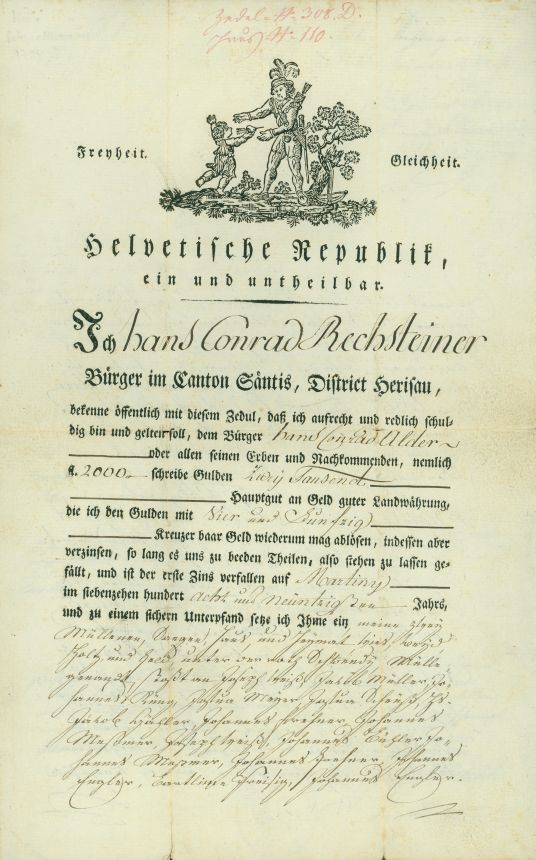 Zedel-N: 308. D.
Haus N: 110.
Freyheit. Gleichheit.
Helvetische Republik,
ein und untheilbar.
Ich hans Conrad Rechsteiner
Bürger im Canton Säntis, District Herisau,
bekenne öffentlich mit diesem Zedul, daß ich aufrecht und redlich schul-
dig bin und gelten soll, dem Bürger hans Conrad Alder
oder allen seinen Erben und Nachkommenden, nemlich
fl. 2000. schreibe Gulden Zwey Tausend
Hauptgut an Geld guter Landwährung,
die ich den Gulden mit Vier und Fünfzig
Kreuzer baar Geld wiederum mag ablösen, indessen aber
verzinsen, so lang es uns zu beeden Theilen, also stehen zu lassen ge-
fällt, und ist der erste Zins verfallen auf Martiny
im siebenzehen hundert acht und Neüntzigsten Jahrs,
und zu einem sichern Unterpfand setze ich Ihme ein meine
Müllenen, Haus und
Holtz und unter
genandt, Stoßt an Joseph Jacob Müller, Jo-
hannes Josua Meyer, Josua
Jacob Johannes Johannes
Meßmer, Joseph Johannes Jo-
hannes Meßmer, Johannes Johannes
Engler, Johannes Engler.